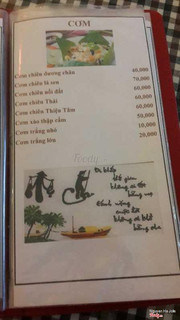 CƠM
Cơm chiên dương châu 40,000
Cơm chiên lá sen 70,000
Cơm chiên nồi đất 60,000
Cơm chiên Thái 60,000
Cơm chiên Thiện Tâm 60,000
Cơm xào thập cẩm 50,000
Cơm trắng nhỏ 10,000
Cơm trắng lớn 20,000
Đi khắp
thế gian
không ai tốt
bằng mẹ
Gánh nặng
cuộc đời
không ai khổ
bằng cha